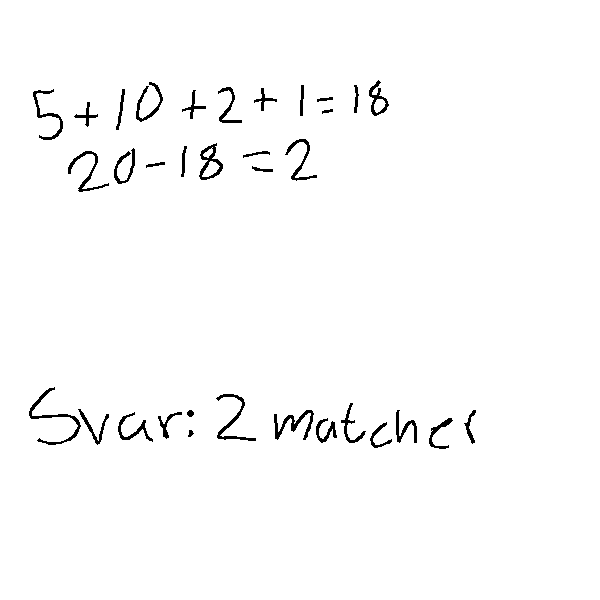 5+10+2+1=18
20-18=2
Svar: 2 matcher